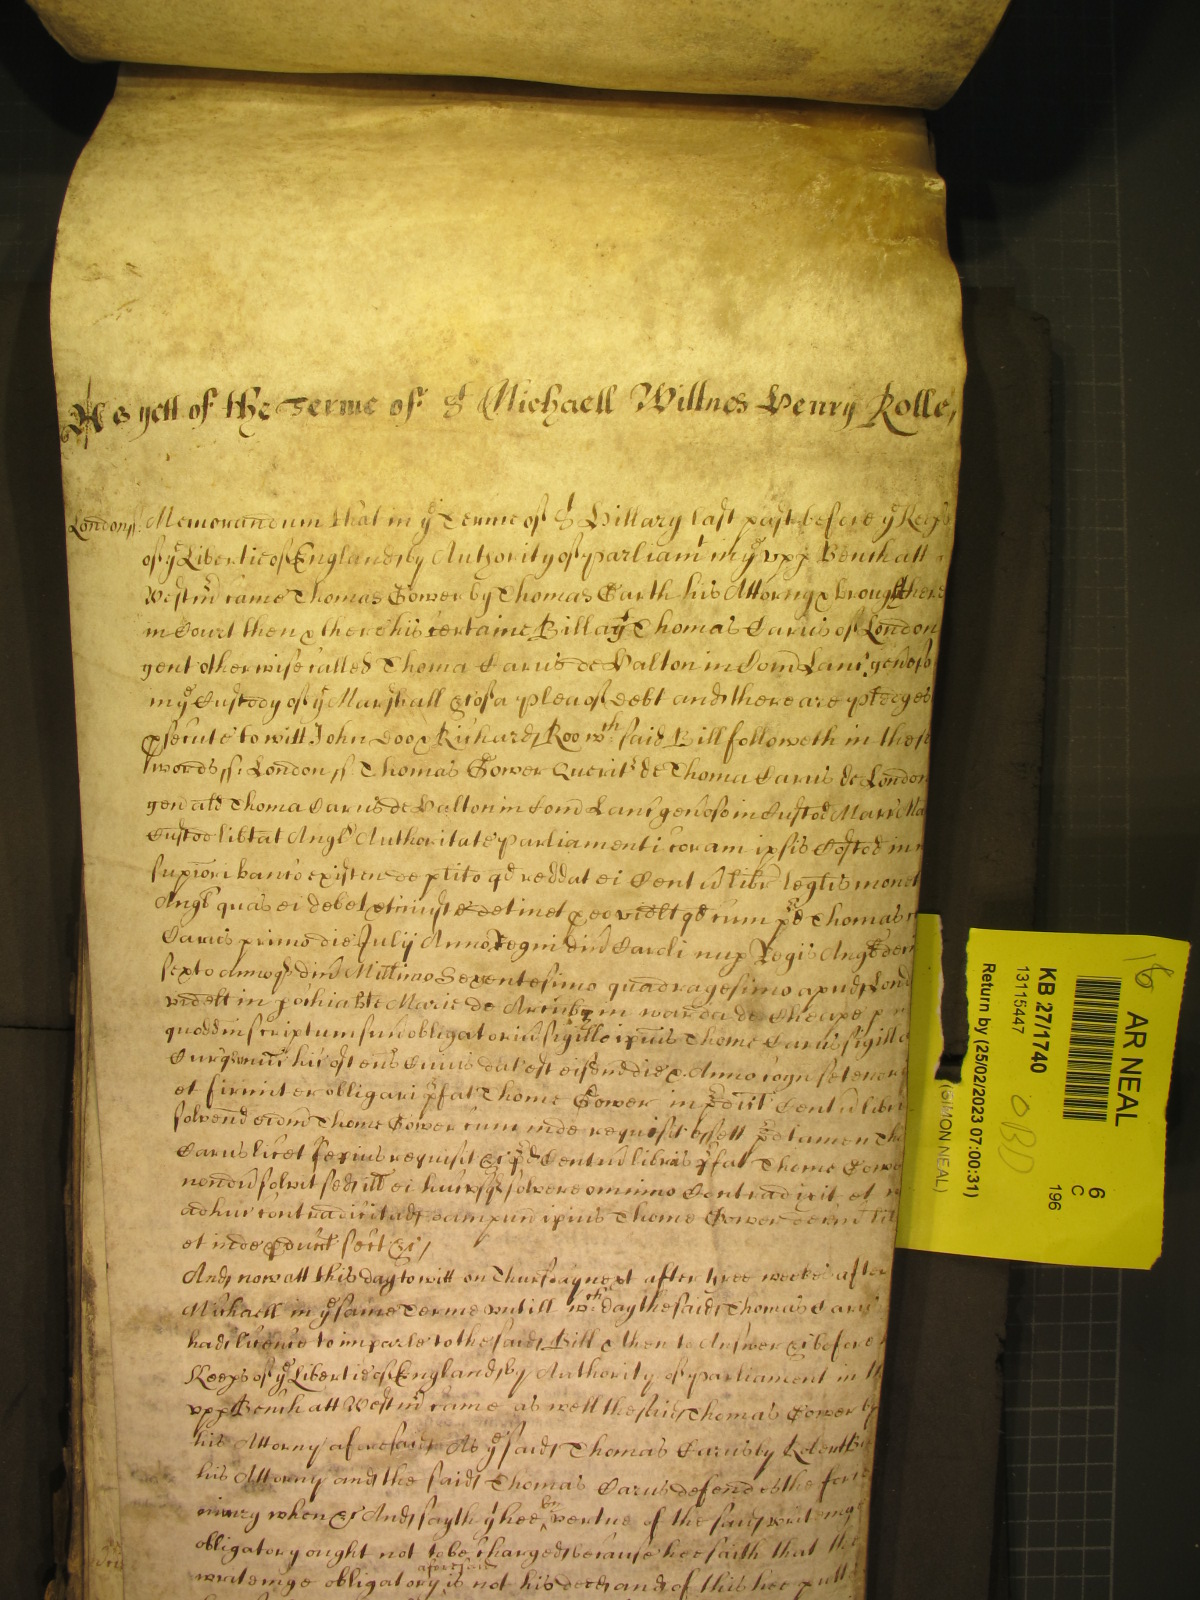 As yett of the Terme of St Michaell Willnes Henry Rolle
London ss. Memorandum that in ye Terme of St Hillary last past before ye Keeps
of ye Libertie of England by Authority of parliamt in ye upp Bench att
Westmr came Thomas Gower by Thomas Garth his Attorny & brought here
in Court then & there his certaine Bill agt Thomas Carus of London
gent otherwise called Thoma Carus de Halton in Com Lanc genoso
in ye Custody of ye Marshall &c of a plea of debt and there are pledges
psecute to witt John Doo & Richard Roo wch said Bill followeth in these
words ss. London ss. Thomas Gower querit de Thoma Carus de London
gen als Thoma Carus de Halton in Com Lanc genoso in Custod Marr
Custod libtat Angl Authoritate Parliamenti coram ipsis Custod in
supiori banco existen de plito qd reddat ei Centu libr legtis monet
Angl quas ei debet et iniuste detinet p eo videlt qd cum pd Thomas
Carus primo die Julij Anno regni dni Caroli nup Regis Angl
sexto annoqs dni Millimo Sexentesimo quadragesimo apud Lond
videlt in pochia bte Marie de Arcubz in warda de Cheape p
quoddm scriptum suu obligatoriu sigillo ipius Thome Carus sigillat
Cur hic ostens Cuius dat est eisdm die & Anno cogn se teneri
et firmiter obligari pfat Thome Gower in pdict Centu libr
solvend eidm Thome Gower cum inde requisit essett pd tamen
Carus licet sepius requisit &c pd Centu libras pfat Thome Gower
nondu solvit sed ill ei hucusqs solvere omnino Contradixit et
adhuc contradicit ad dampnu ipius Thome Gower
et inde pducit sect &c
And now att this day to witt on Thursday next after three weekes after
Michaell in ye same Terme untill wch day the said Thomas Carus
had licence to imparle to the said Bill & then to Answer &c before
Keeps of ye Libertie of England by Authority of parliament in
upp Bench att Westmr came as well the said Thomas Gower by
his Attorny aforesaid As ye said Thomas Carus by Robert
his Attorny and the said Thomas Carus defendes the force
iniury when &c And sayth yt hee by vertue of the said writinge
obligatory ought not to be charged because hee saith that the
writeinge obligatory aforesaid is not his deed and of this hee putt
AR NEAL
6
C
196
KB 27/1740
13115447
Return by (25/02/2023 07:00:31)
(SIMON NEAL)